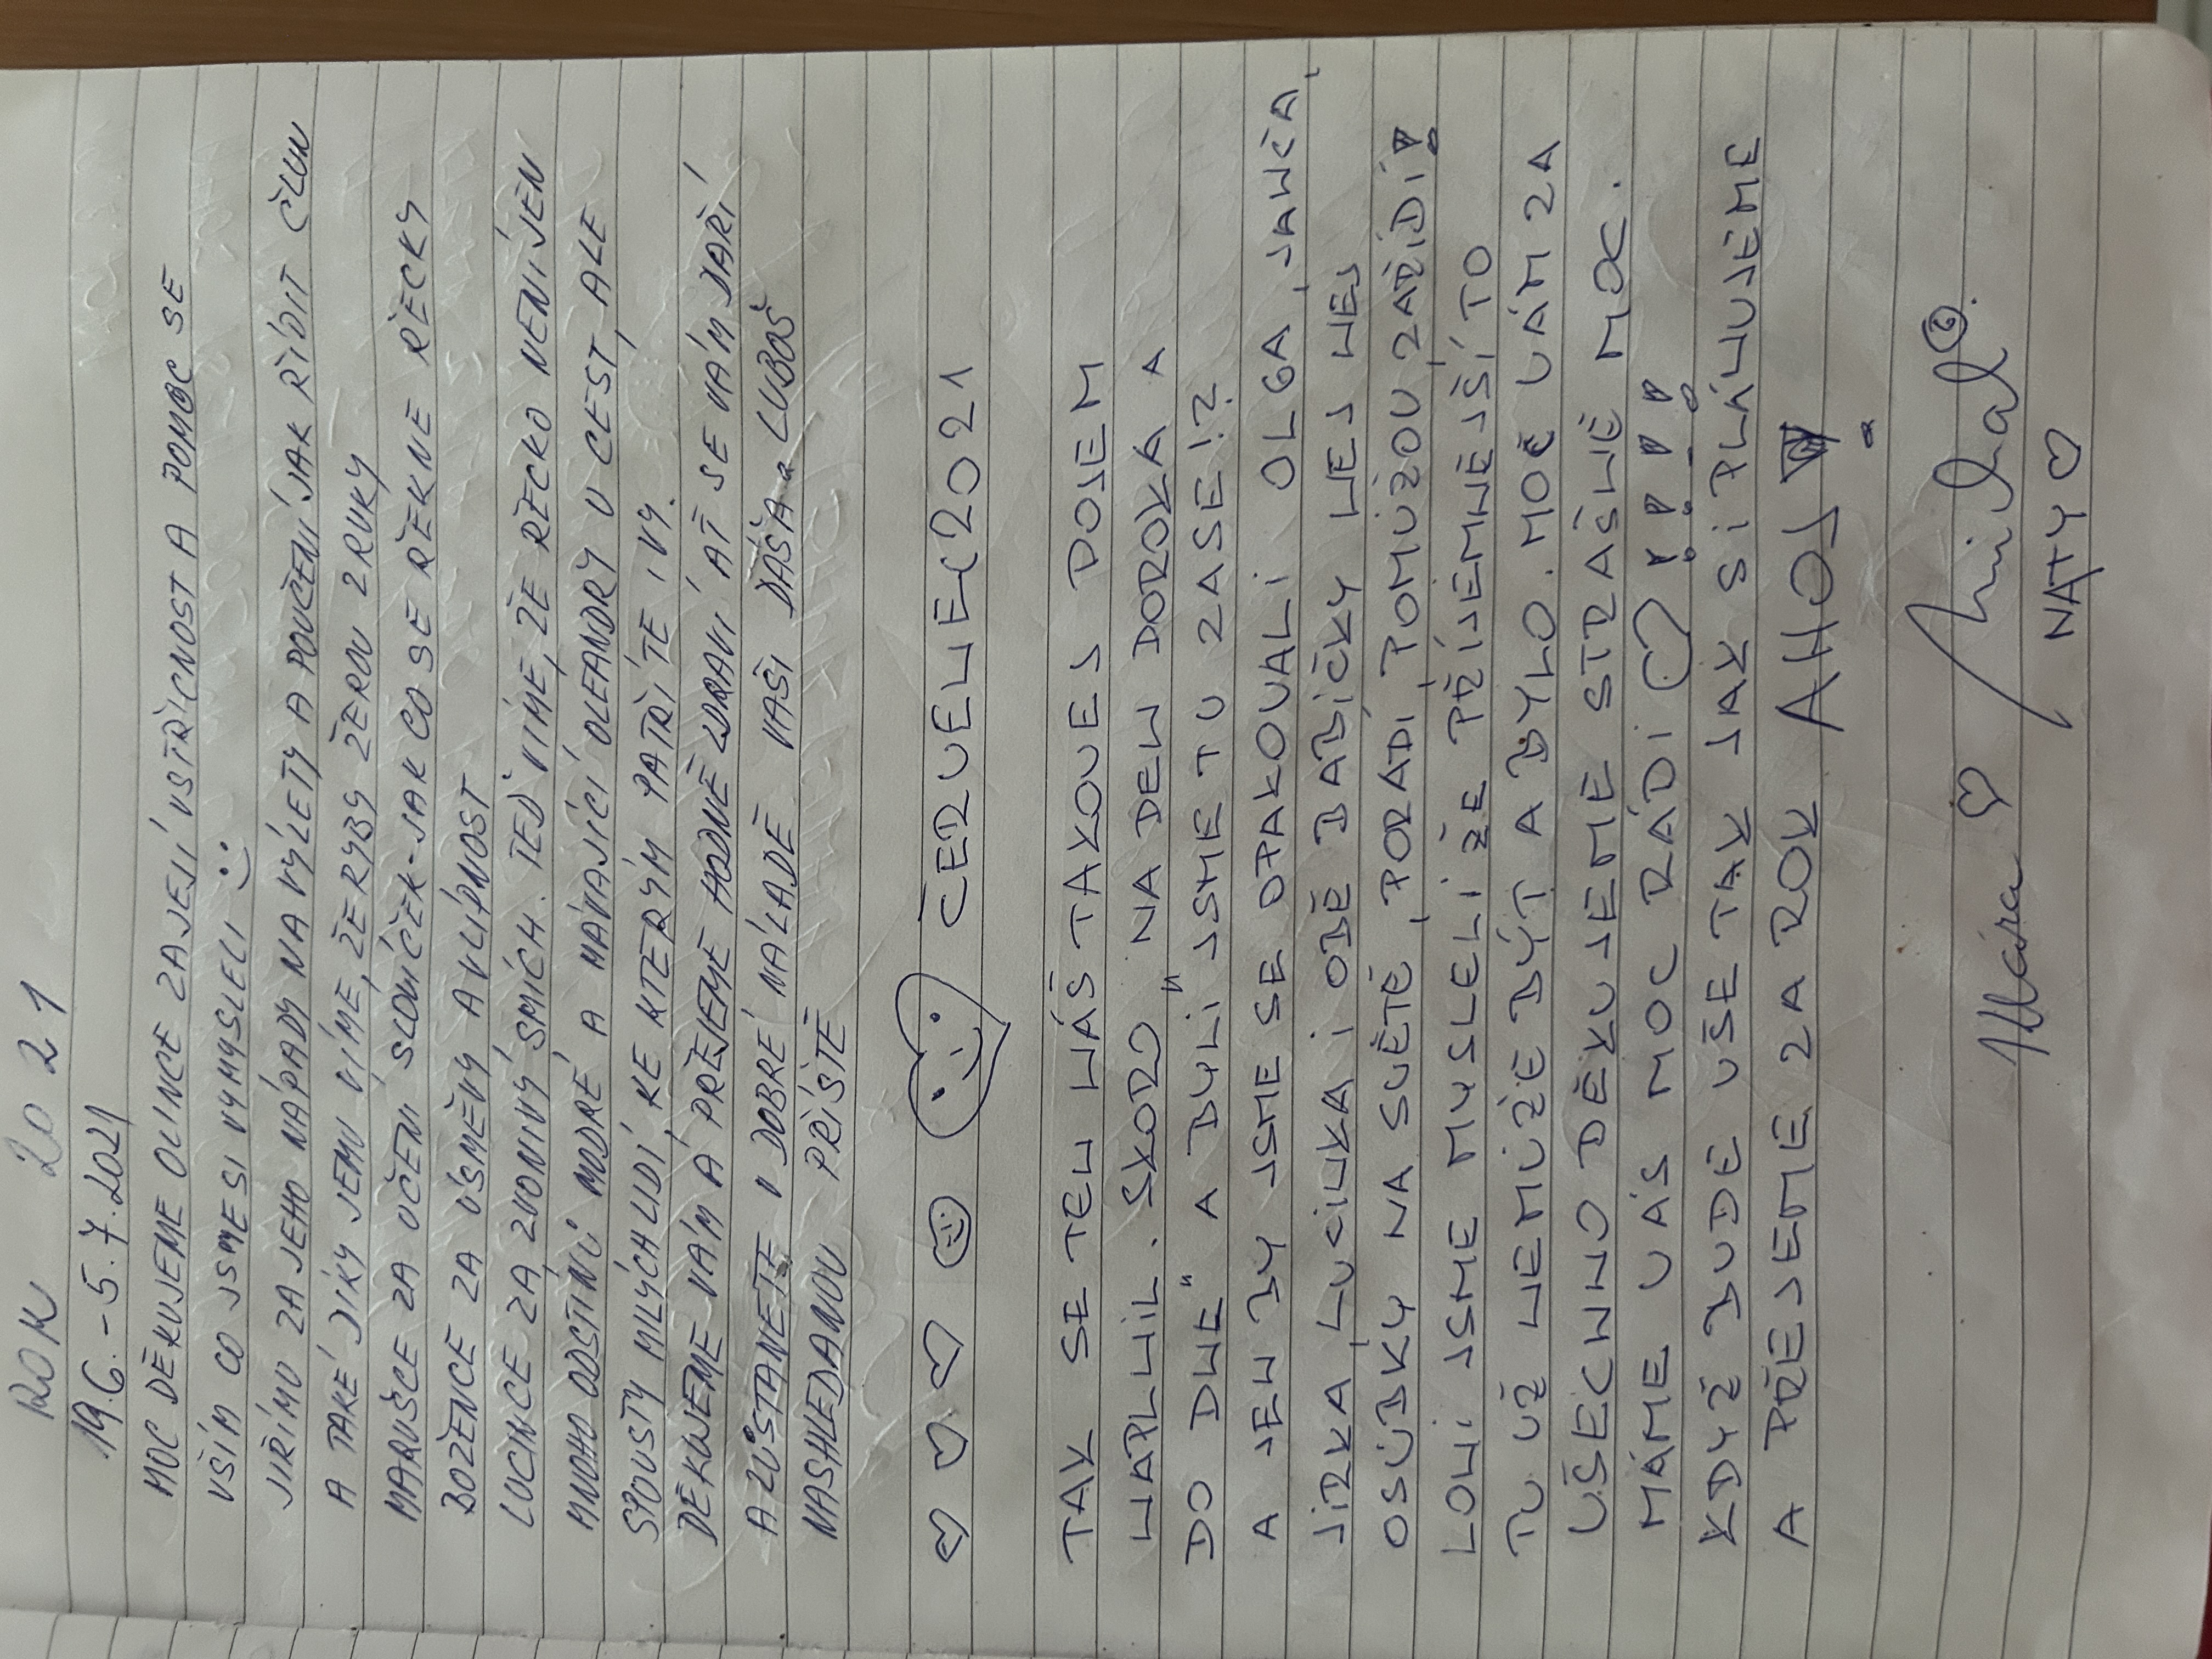 ROK 2021
19.6. - 5.7.2021
MOC DĚKUJEME OLINCE ZA JEJÍ VSTŘÍCNOST A POMOC SE
VŠÍM CO JSME SI VYMYSLELI :)
JIŘÍMU ZA JEHO NÁPADY NA VÝLETY A POUČENÍ JAK ŘÍDIT ČLUN
A TAKÉ DÍKY JEMU VÍME, ŽE RYBY ŽEROU Z RUKY
MARUŠCE ZA UČENÍ SLOVÍČEK - JAK CO SE ŘEKNE ŘECKY
BOŽENCE ZA ÚSMĚVY A VLÍDNOST
LUCINCE ZA ZVONIVÝ SMÍCH. TEĎ VÍME, ŽE ŘECKO NENÍ JEN
MNOHO ODSTÍNŮ MODRÉ A MÁVAJÍCÍ OLEANDRY U CEST, ALE
SPOUSTY MILÝCH LIDÍ, KE KTERÝM PATŘÍTE I VY.
DĚKUJEME VÁM A PŘEJEME HODNĚ ZDRAVÍ AŤ SE VÁM DAŘÍ
A ZŮSTANETE V DOBRÉ NÁLADĚ VAŠI DÁŠA a LUBOŠ
NASHLEDANOU PŘÍŠTĚ
ČERVENEC 2021
TAK SE TEN NÁŠ TAKOVEJ DOJEM
NAPLNIL. SKORO NA DEN DOROKA A
DO DNE " A BYLI " JSME TU ZASE!?
A JEN BY JSME SE OPAKOVALI OLGA, JANČA,
JIRKA, LUCINKA I OBĚ BABIČKY NEJ NEJ
OSŮBKY NA SVĚTĚ, PORADI, POMUŽOU ZAŘÍDÍ!
LONI JSME MYSLELI ŽE PŘÍJEMNĚJŠÍ TO
TU UŽ NEMUŽE BÝT A BYLO. MOC VÁM ZA
VŠECHNO DĚKUJEME STRAŠNĚ MOC.
MÁME VÁS MOC RÁDI ♡ ! ! ! !
KDYŽ BUDE VŠE TAK JAK SI PLÁNUJEME
A PŘEJEME ZA ROK AHOJ
Michal
NATY ♡